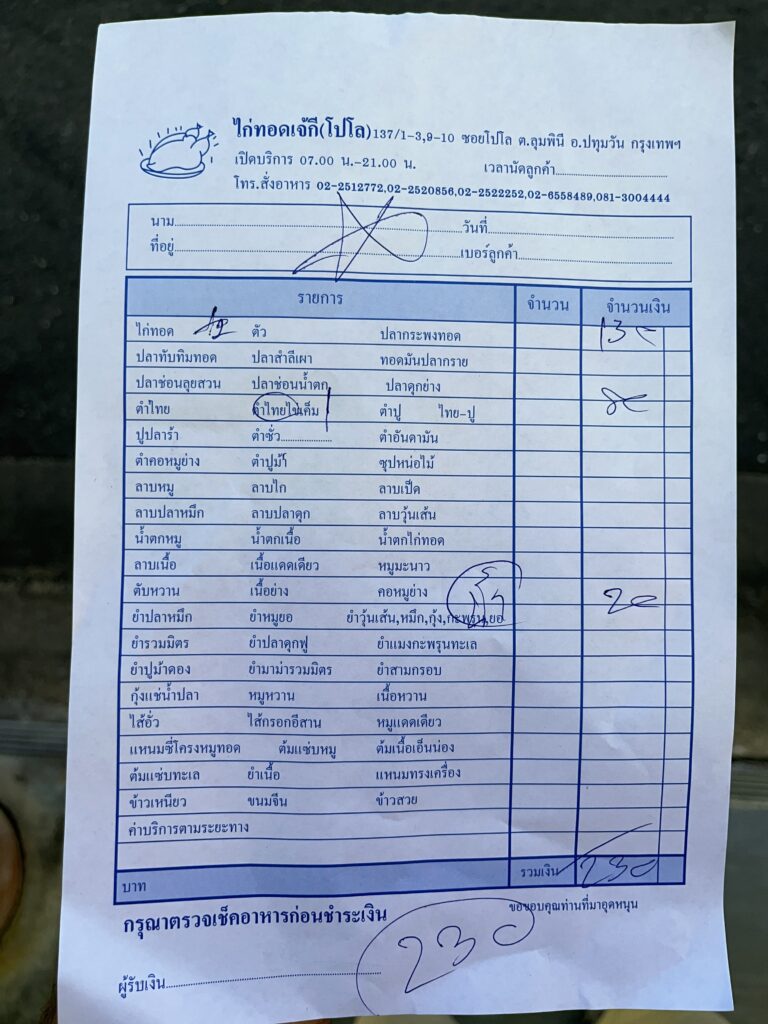 ไก่ทอดเจ๊กี(โปโล)137/1-3,9-10 ซอยโปโล ต.ลุมพินี อ.ปทุมวัน กรุงเทพฯ
เปิดบริการ 07.00 น.-21.00 น. เวลานัดลูกค้า
โทร.สั่งอาหาร 02-2512772,02-2520856,02-2522252,02-6558489,081-3004444
นาม วันที่
ที่อยู่ เบอร์ลูกค้า
รายการ จำนวน จำนวนเงิน
ไก่ทอด ตัว ปลากระพงทอด 130
ปลาทับทิมทอด ปลาสำลีเผา ทอดมันปลากราย
ปลาช่อนลุยสวน ปลาช่อนน้ำตก ปลาดุกย่าง
ตำไทย ตำไทยไข่เค็ม ตำปู ไทย-ปู 80
ปูปลาร้า ตำซั่ว ตำอันดามัน
ตำคอหมูย่าง ตำปูม้า ซุปหน่อไม้
ลาบหมู ลาบไก่ ลาบเป็ด
ลาบปลาหมึก ลาบปลาดุก ลาบวุ้นเส้น
น้ำตกหมู น้ำตกเนื้อ น้ำตกไก่ทอด
ลาบเนื้อ เนื้อแดดเดียว หมูมะนาว
ตับหวาน เนื้อย่าง คอหมูย่าง 20
ยำปลาหมึก ยำหมูยอ ยำวุ้นเส้น,หมึก,กุ้ง,กะพรุน,ยอ
ยำรวมมิตร ยำปลาดุกฟู ยำแมงกะพรุนทะเล
ยำปูม้าดอง ยำมาม่ารวมมิตร ยำสามกรอบ
กุ้งแช่น้ำปลา หมูหวาน เนื้อหวาน
ไส้อั่ว ไส้กรอกอีสาน หมูแดดเดียว
แหนมซี่โครงหมูทอด ต้มแซ่บหมู ต้มเนื้อเอ็นน่อง
ต้มแซ่บทะเล ยำเนื้อ แหนมทรงเครื่อง
ข้าวเหนียว ขนมจีน ข้าวสวย
ค่าบริการตามระยะทาง
บาท รวมเงิน 230
กรุณาตรวจเช็คอาหารก่อนชำระเงิน ขอขอบคุณท่านที่มาอุดหนุน
230
ผู้รับเงิน